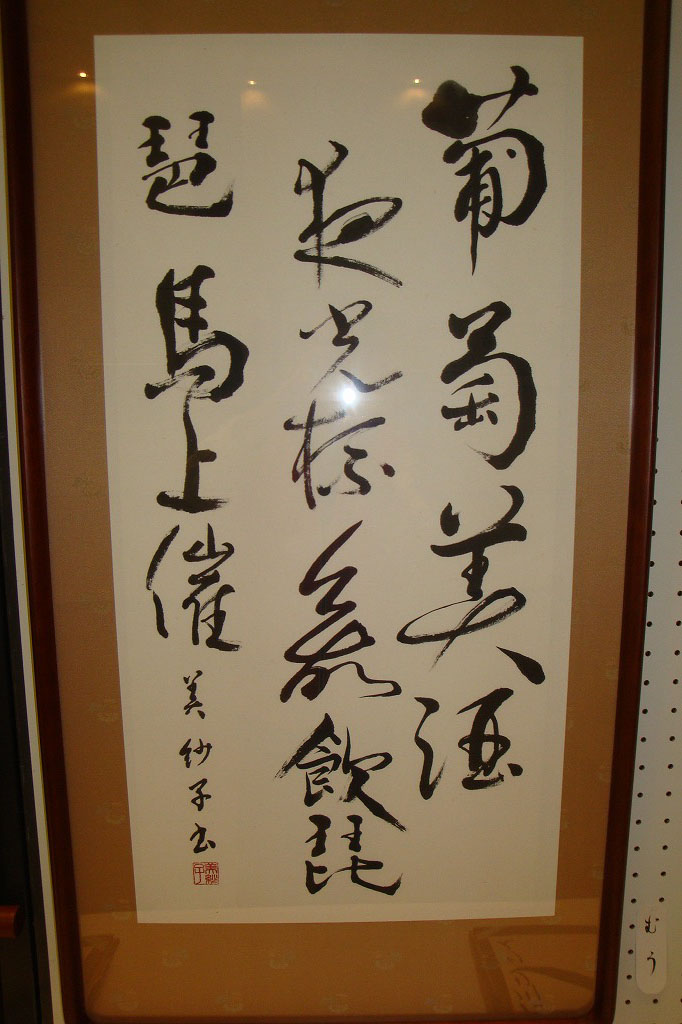 葡萄美酒
夜光杯欲飲琵
琶馬上催
美紗子書
むう